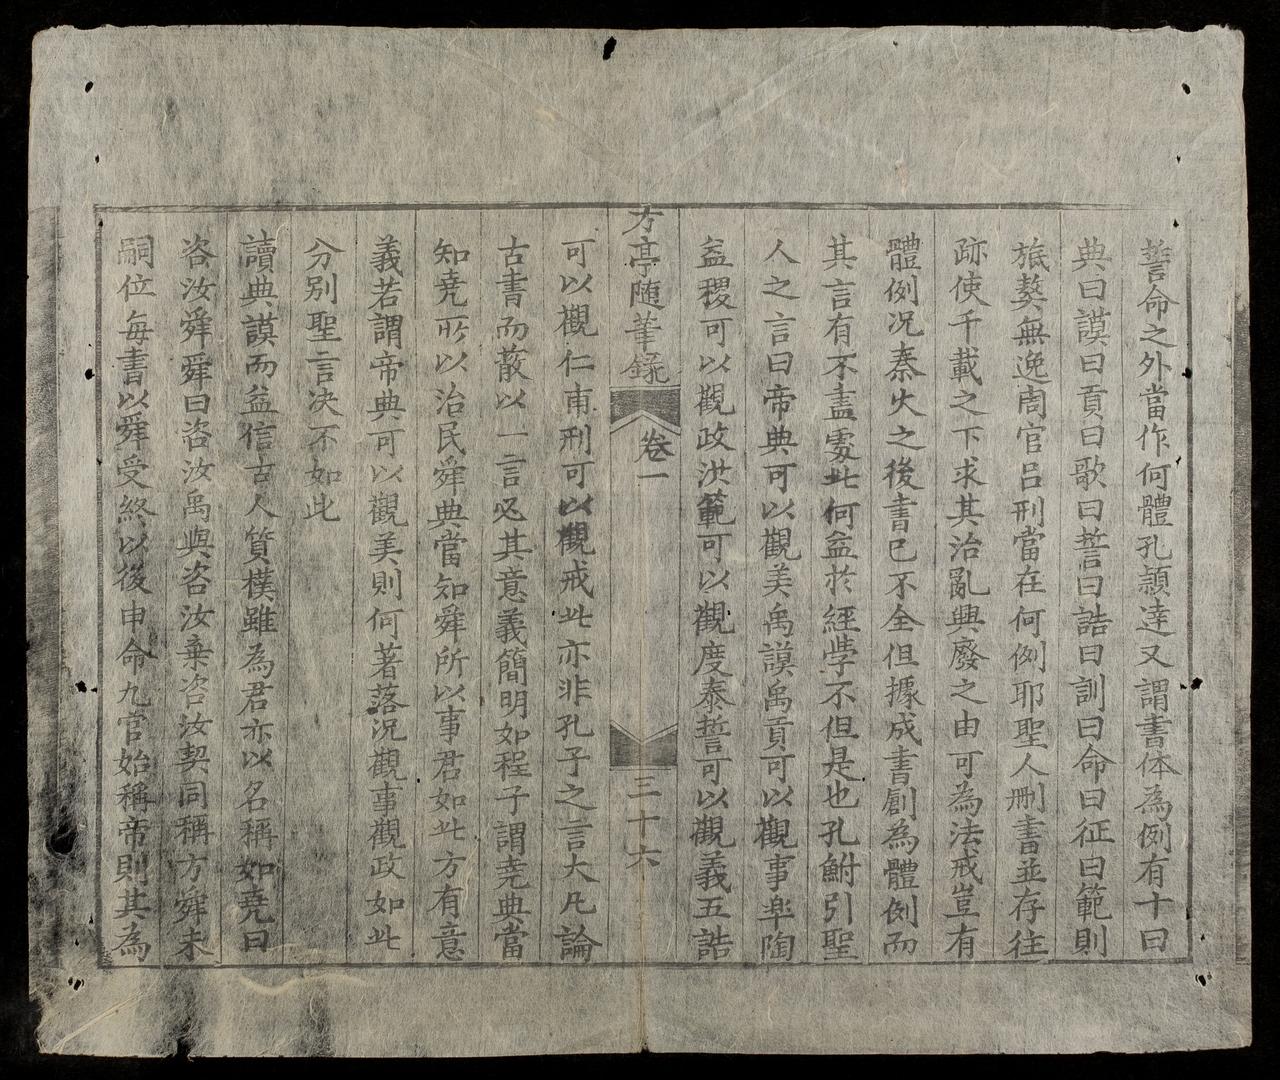 誓命之外當作何體孔頴達又謂書体為例有十曰
典曰謨曰貢曰歌曰誓曰誥曰訓曰命曰征曰範則
旅獒無逸周官吕刑當在何例耶聖人刪書並存往
跡使千載之下求其治亂興廢之由可為法戒豈有
體例况秦火之後書已不全但據成書創為體例而
其言有不盡䖏此何益於經學不但是也孔鮒引聖
人之言曰帝典可以觀美禹謨禹貢可以觀事皐陶
益稷可以觀政洪範可以觀度泰誓可以觀義五誥
可以觀仁甫刑可以觀戒此亦非孔子之言大凡論
古書而蔽以一言必其意義簡明如程子謂尭典當
知尭所以治民舜典當知舜所以事君如此方有意
義若謂帝典可以觀美則何著落况觀事觀政如此
分别聖言决不如此
讀典謨而益信古人質樸雖為君亦以名稱如尭曰
咨汝舜舜曰咨汝禹與咨汝棄咨汝契同稱方舜未
嗣位每書以舜受終以後申命九官始稱帝則其為
方亭随筆錄
卷一
三十六